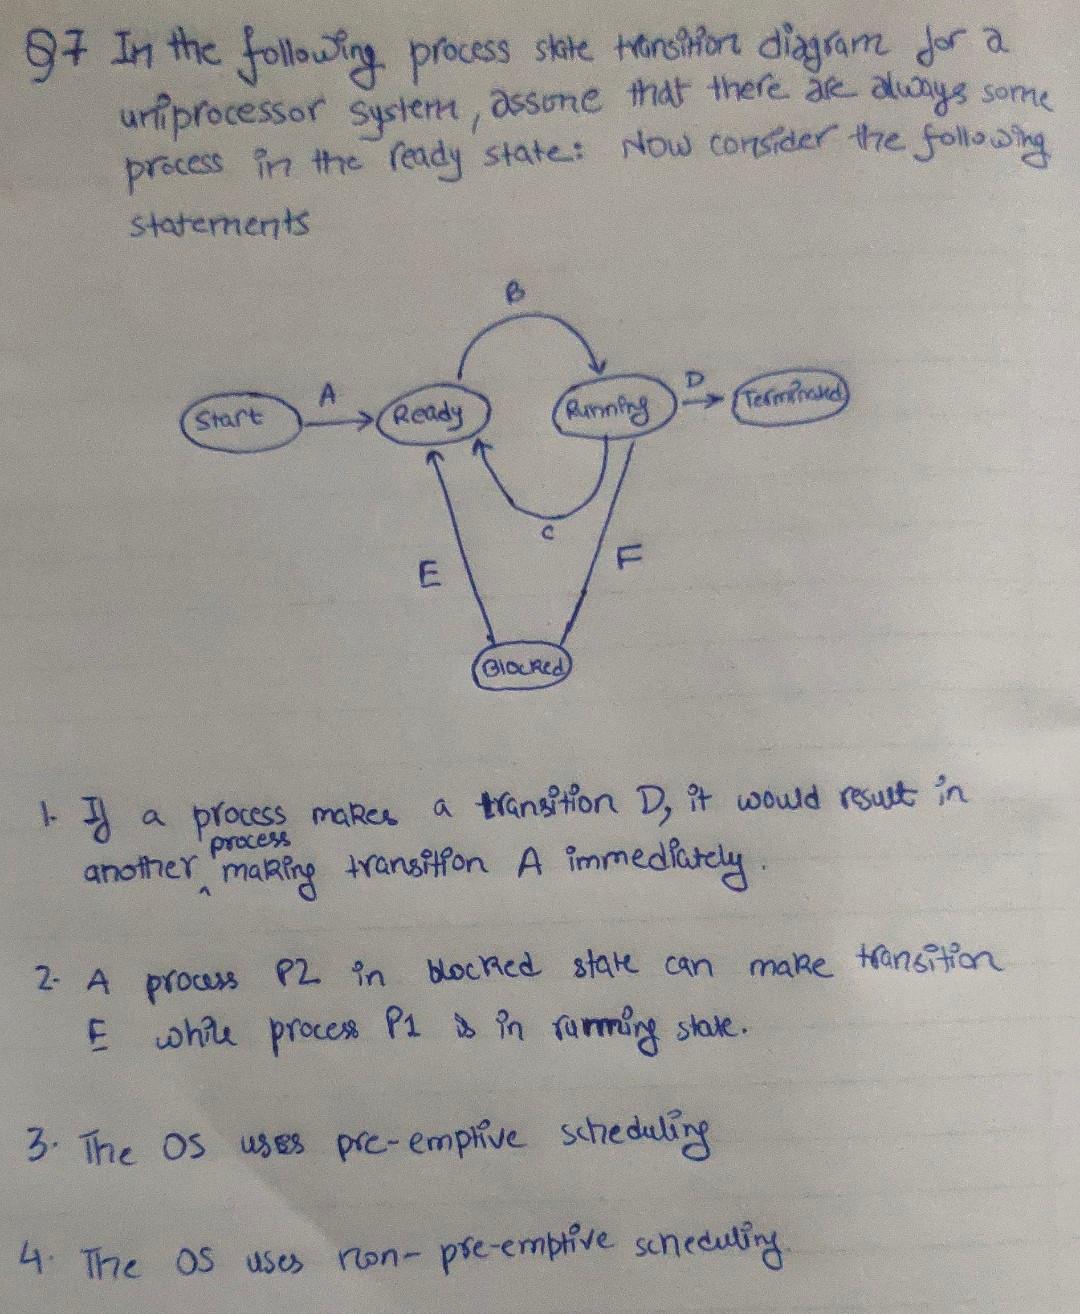 Q7 In the following process state transition diagram for a
uniprocessor system, assume that there are always some
process in the ready state: Now consider the following
statements
B
A
D
Start
Ready
Running
Terminated
C
E
F
Blocked
1. If a process makes a transition D, it would result in
process
another ^ making transition A immediately.
2. A process P2 in blocked state can make transition
E while process P1 is in running state.
3. The OS uses pre-emptive scheduling
4. The OS uses non-pre-emptive scheduling.